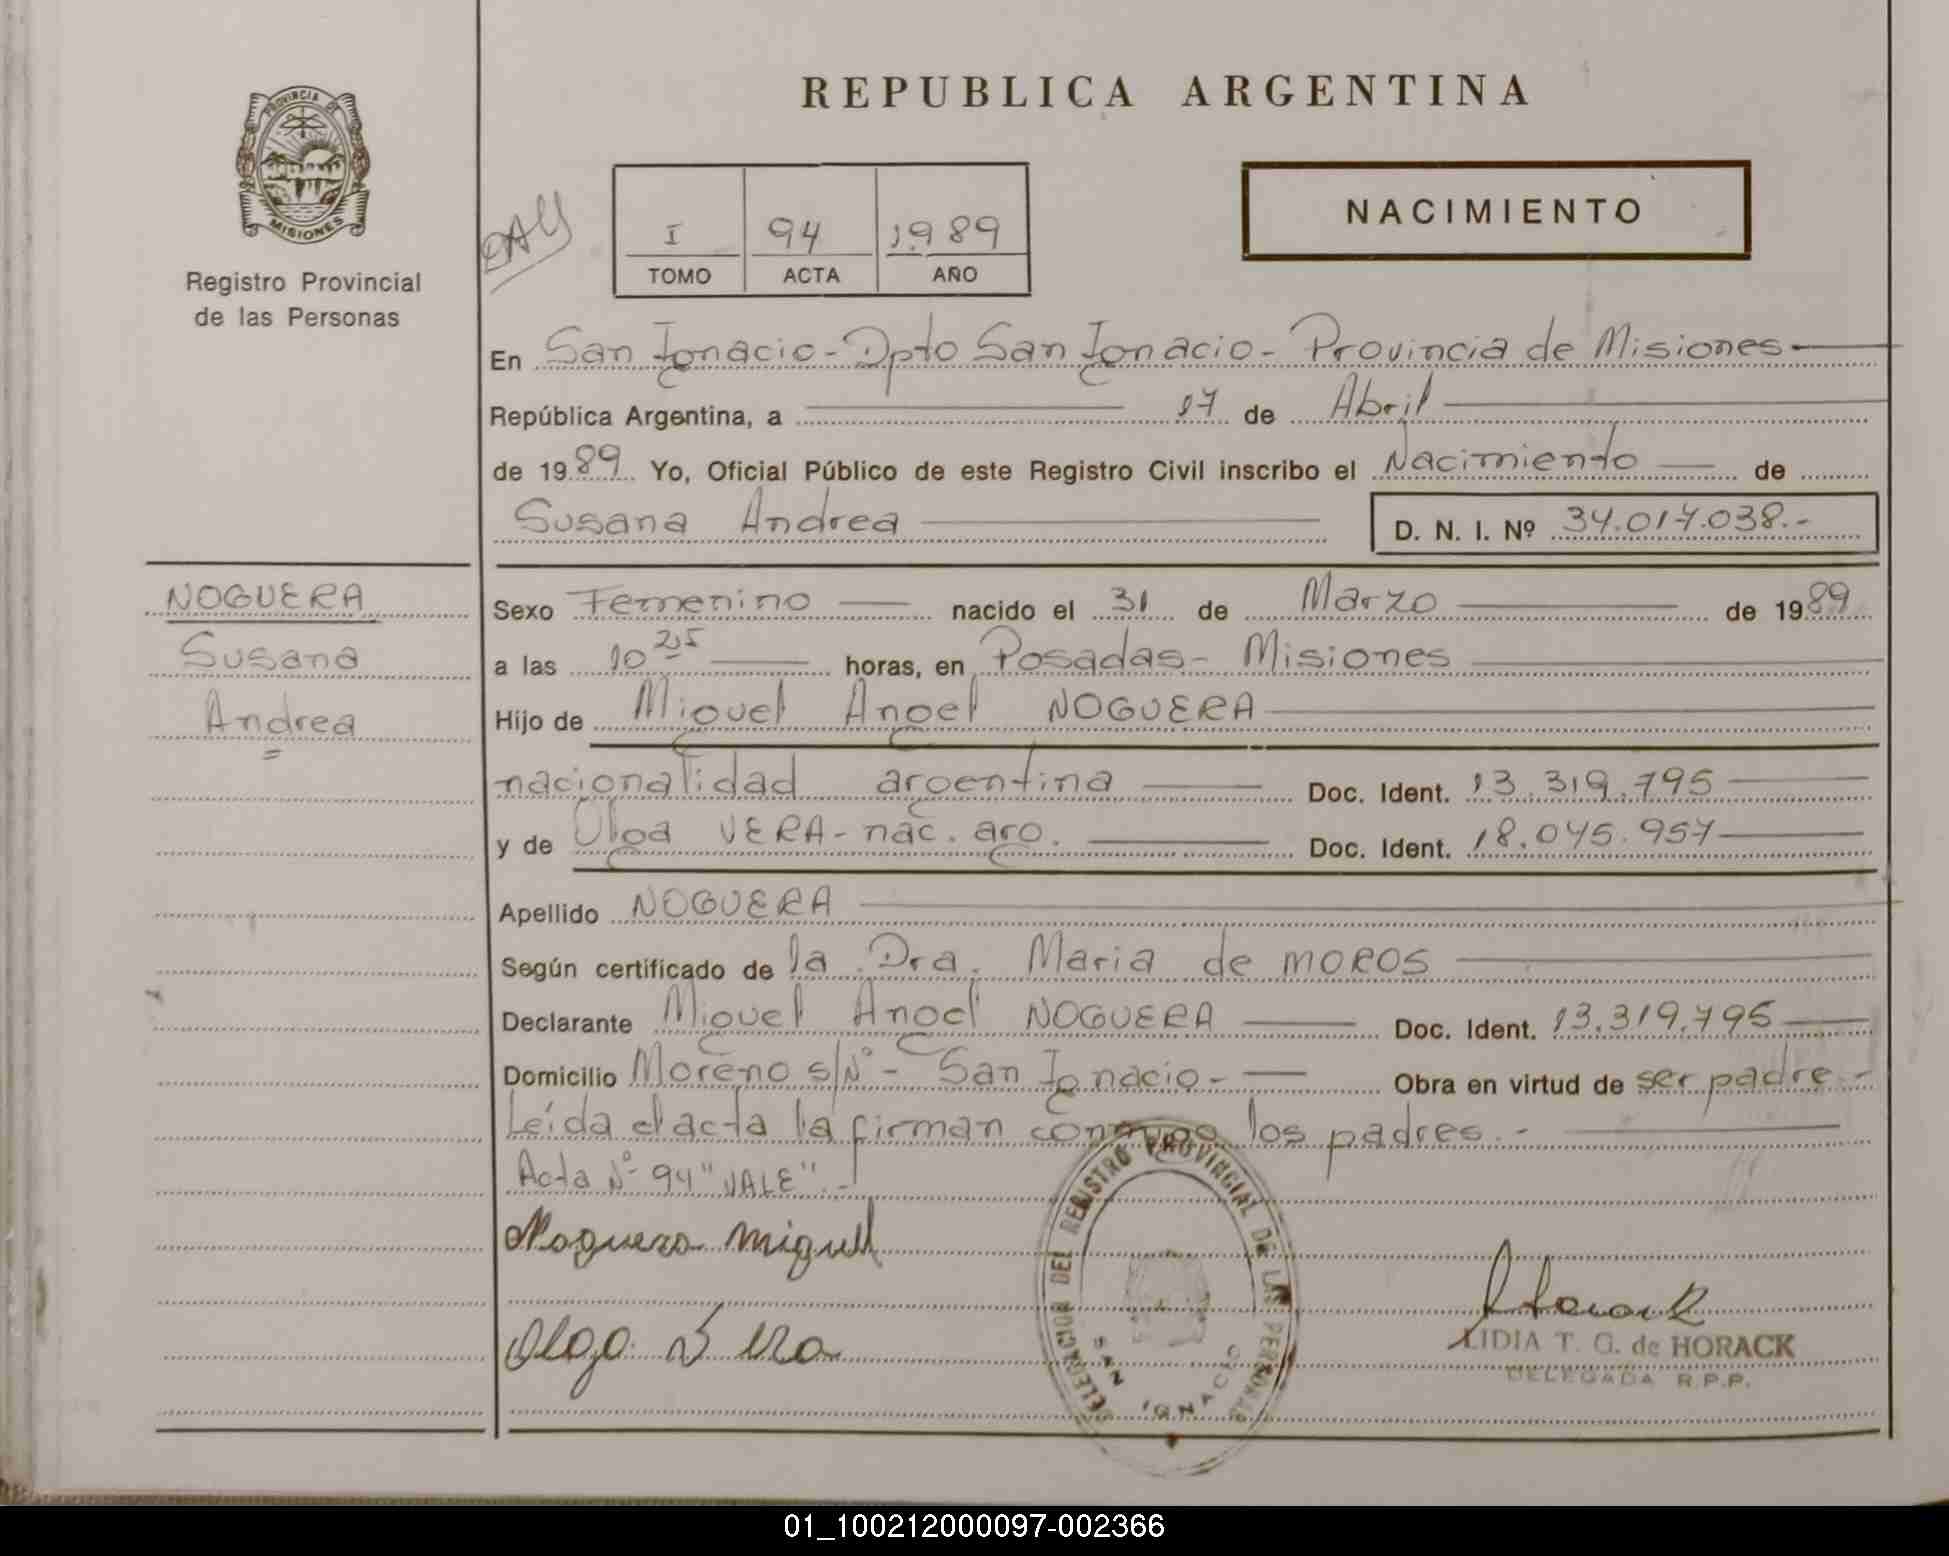 REPUBLICA ARGENTINA
PROVINCIA DE
MISIONES
Registro Provincial
de las Personas
I 94 1989
TOMO ACTA AÑO
NACIMIENTO
En San Ignacio - Dpto San Ignacio - Provincia de Misiones
República Argentina, a 17 de Abril
de 1989 Yo, Oficial Público de este Registro Civil inscribo el Nacimiento de
Susana Andrea D. N. I. Nº 34.017.038.-
NOGUERA
Susana
Andrea
Sexo Femenino nacido el 31 de Marzo de 1989
a las 10 25 horas, en Posadas - Misiones
Hijo de Miguel Angel NOGUERA
nacionalidad argentina Doc. Ident. 13.319.795
y de Olga VERA - nac. arg. Doc. Ident. 18.045.957
Apellido NOGUERA
Según certificado de la Dra. Maria de MOROS
Declarante Miguel Angel NOGUERA Doc. Ident. 13.319.795
Domicilio Moreno s/Nº - San Ignacio - Obra en virtud de ser padre.-
Leída el acta la firman conmigo los padres.-
Acta Nº 94 "VALE".-
Noguera Miguel
Olga Vera
DELEGACION DEL REGISTRO PROVINCIAL DE LAS PERSONAS
SAN IGNACIO
Horack
LIDIA T. G. de HORACK
DELEGADA R.P.P.
01_100212000097-002366